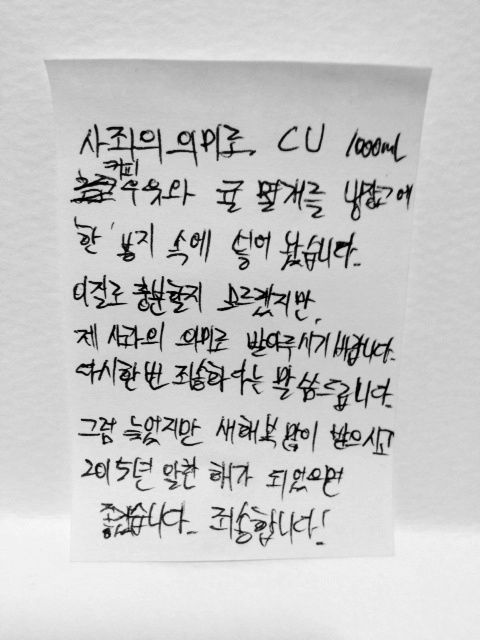 사죄의 의미로, CU 1000mL
커피
우유와 귤 몇개를 냉장고에
한 봉지 속에 넣어 놨습니다..
이걸로 충분할지 모르겠지만,
제 사과의 의미로 받아주시기 바랍니다..
다시한번 죄송하다는 말씀드립니다..
그럼 늦었지만 새해복 많이 받으시고
2015년 알찬 해가 되었으면
좋겠습니다.. 죄송합니다!